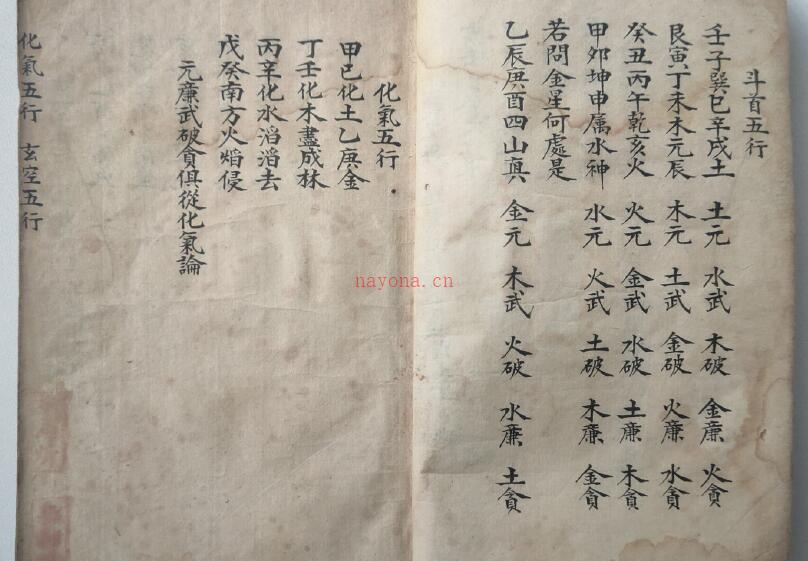 斗首五行
壬子巽巳辛戌土 土元 水武 木破 金廉 火貪
艮寅丁未木元辰 木元 土武 金破 火廉 水貪
癸丑丙午乾亥火 火元 金武 水破 土廉 木貪
甲夘坤申属水神 水元 火武 土破 木廉 金貪
若問金星何處是
乙辰庚酉四山真 金元 木武 火破 水廉 土貪
化氣五行
甲巳化土乙庚金
丁壬化木盡成林
丙辛化水滔滔去
戊癸南方火焰侵
元廉武破貪俱從化氣論
化氣五行 玄空五行
nayona.cn